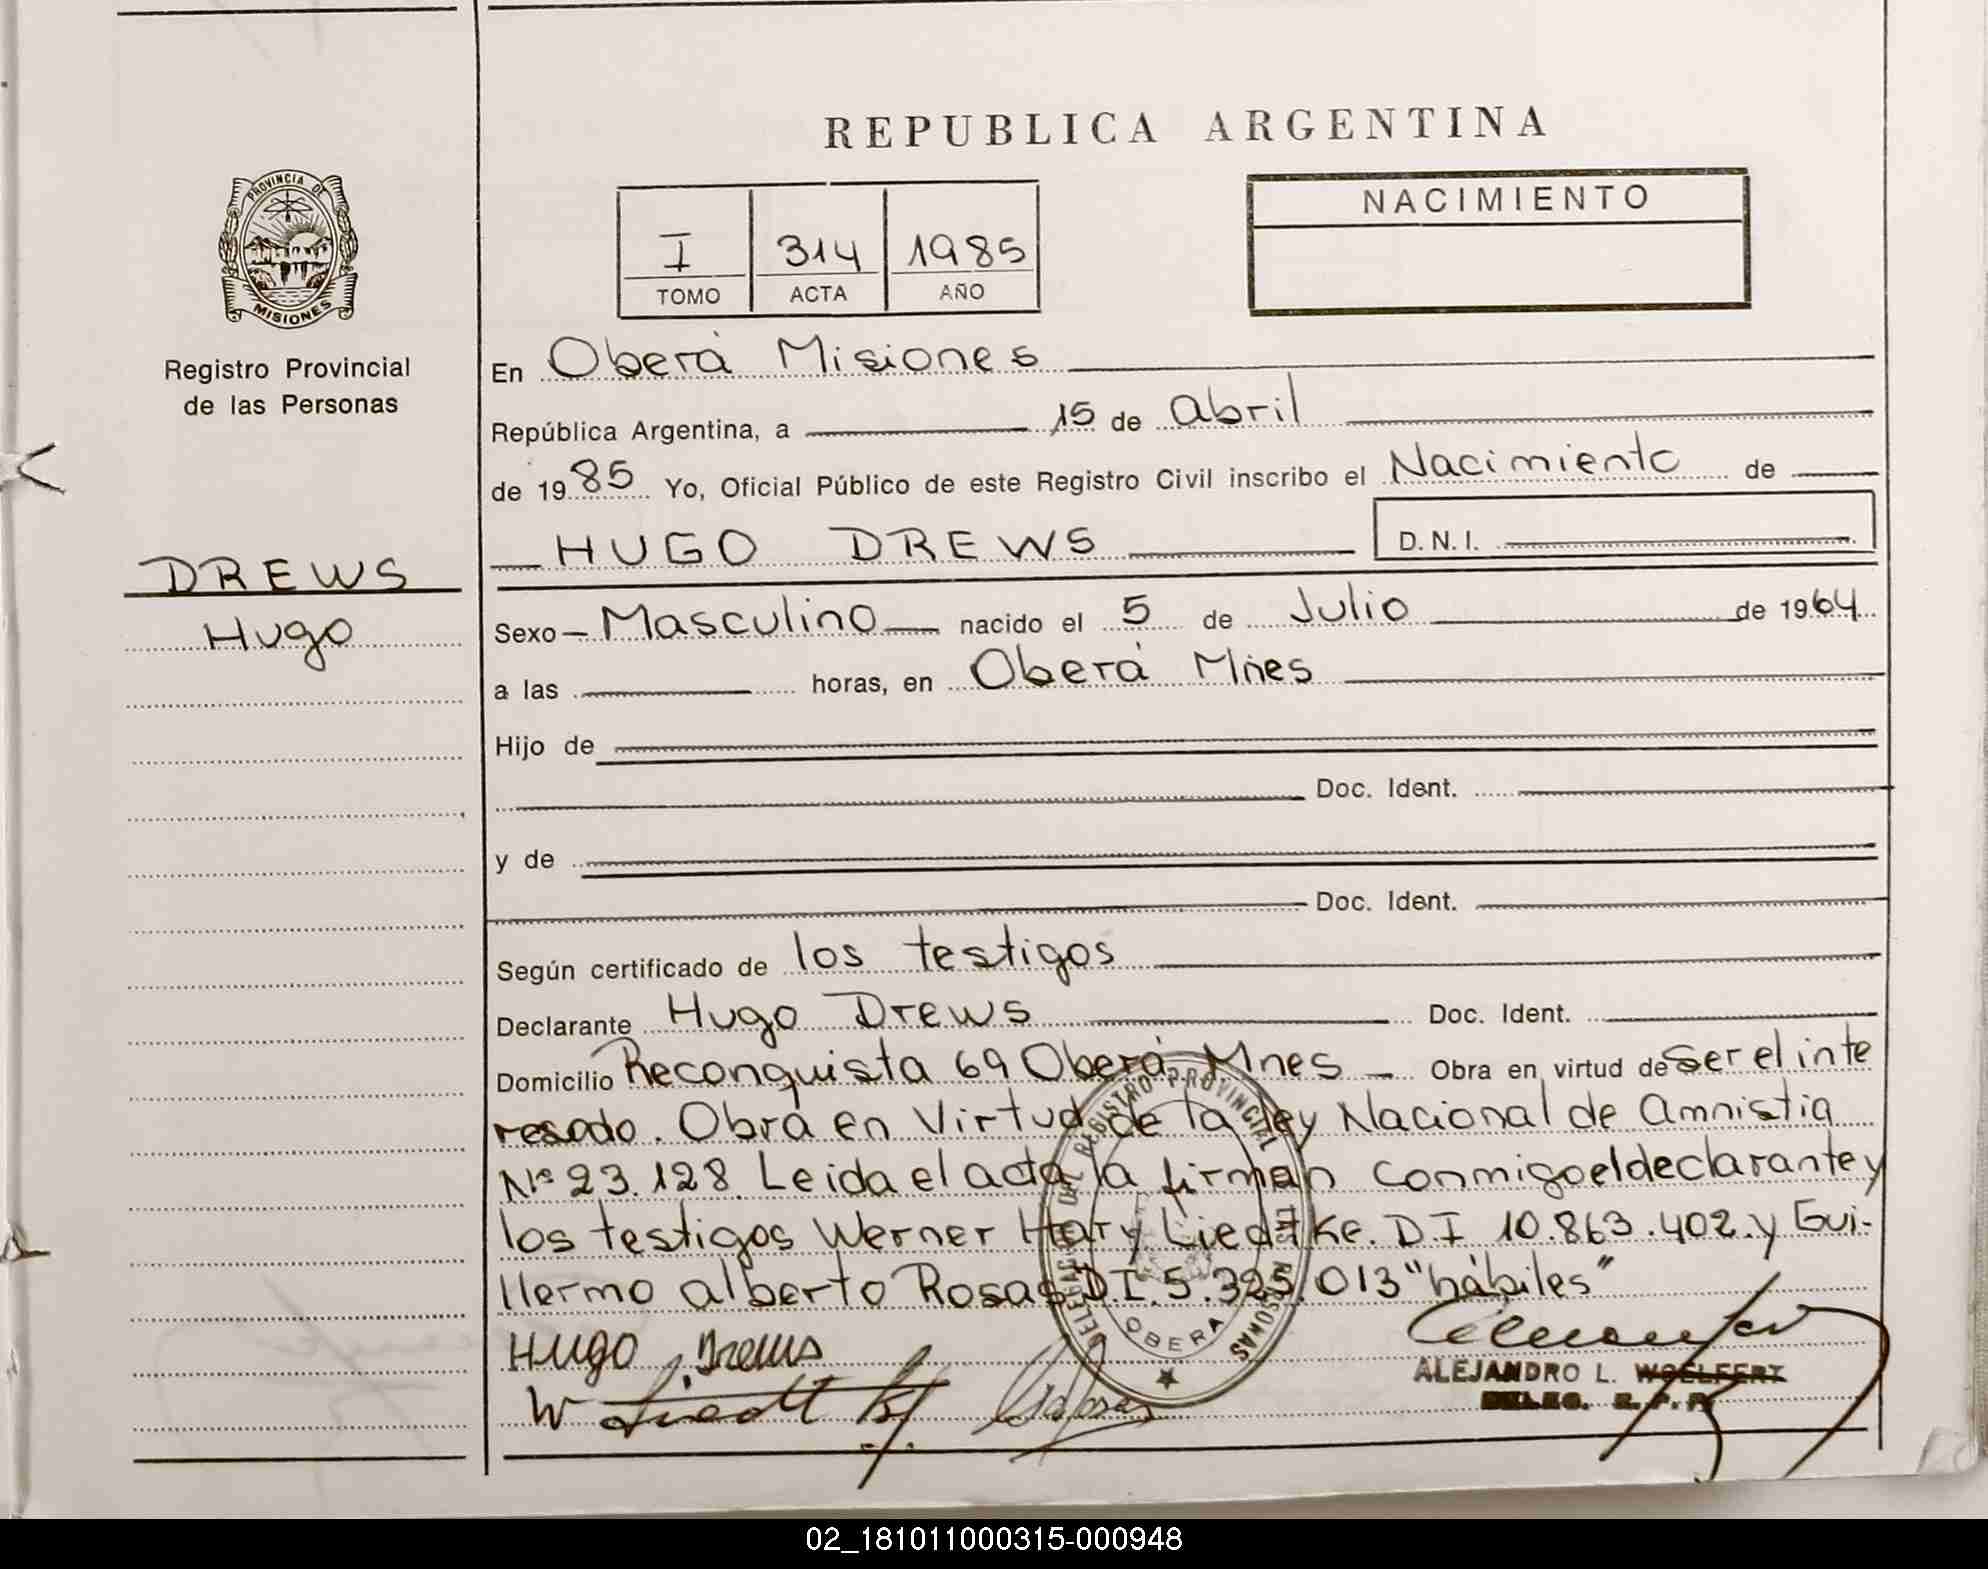 REPUBLICA ARGENTINA
PROVINCIA DE
MISIONES
Registro Provincial
de las Personas
DREWS
Hugo
I 314 1985
TOMO ACTA AÑO
NACIMIENTO
En Oberá Misiones
República Argentina, a 15 de Abril
de 1985 Yo, Oficial Público de este Registro Civil inscribo el Nacimiento de
HUGO DREWS D.N.I.
Sexo Masculino nacido el 5 de Julio de 1964
a las horas, en Oberá Mnes
Hijo de
Doc. Ident.
y de
Doc. Ident.
Según certificado de los testigos
Declarante Hugo Drews Doc. Ident.
Domicilio Reconquista 69 Oberá Mnes Obra en virtud de Ser el inte
resado. Obra en Virtud de la ley Nacional de Amnistia
Nº 23.128 Leida el acta la firman conmigo el declarante y
los testigos Werner Hary Liedtke. D.I 10.863.402. y Gui-
llermo alberto Rosas D.I. 5.325.013 "hábiles"
DELEGACION DEL REGISTRO PROVINCIAL DE LAS PERSONAS
OBERA
HUGO Drews
W Liedtk
ALEJANDRO L. WOELFERT
DELEG. R. P. P.
02_181011000315-000948